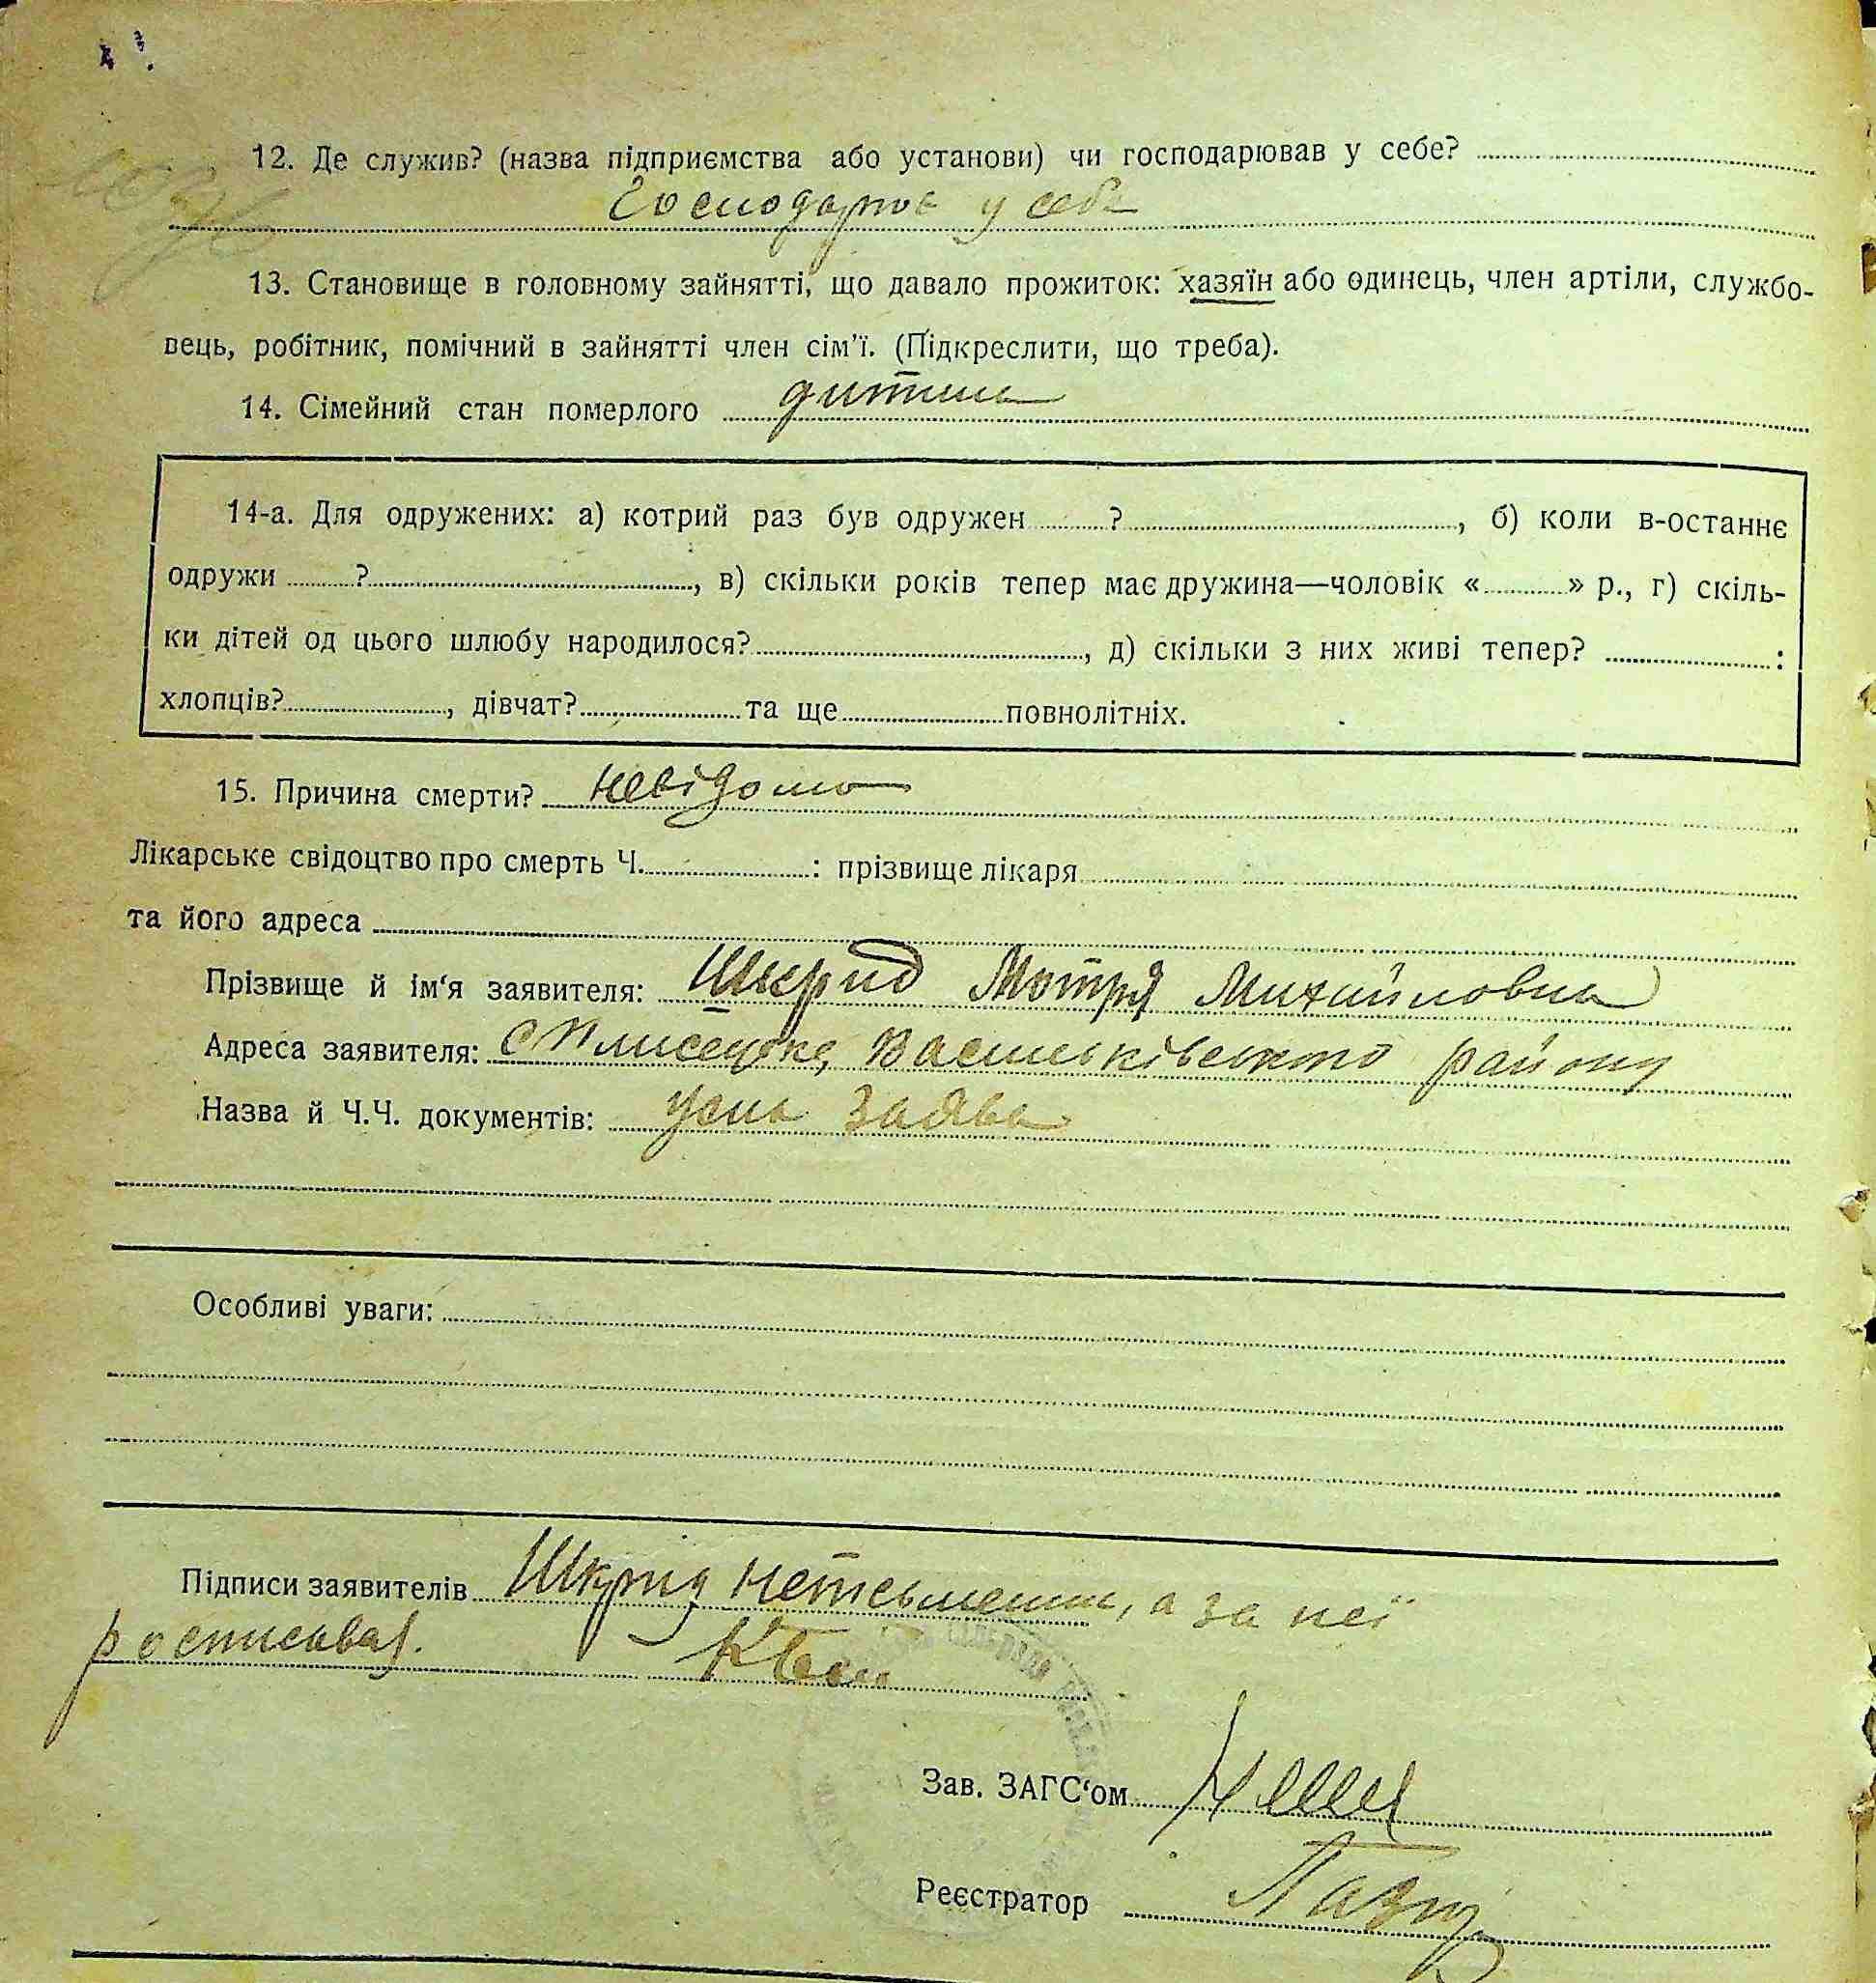 12. Де служив? (назва підприємства або установи) чи господарював у себе?
Господарює у себе
13. Становище в головному зайнятті, що давало прожиток: хазяїн або одинець, член артіли, службо-
вець, робітник, помічний в зайнятті член сім'ї. (Підкреслити, що треба).
14. Сімейний стан померлого дитина
14-а. Для одружених: а) котрий раз був одружен ? , б) коли в-останнє
одружи ? , в) скільки років тепер має дружина—чоловік « » р., г) скіль-
ки дітей од цього шлюбу народилося? , д) скільки з них живі тепер? :
хлопців? , дівчат? та ще повнолітніх.
15. Причина смерти? невідомо
Лікарське свідоцтво про смерть Ч. : прізвище лікаря
та його адреса
Прізвище й ім'я заявителя: Шкрид Мотря Михайловна
Адреса заявителя: с Плисецьке, Васильківського району
Назва й Ч.Ч. документів: усна заява
Особливі уваги:
Підписи заявителів Шкрид нетсьменна, а за неї
росписавсь
Зав. ЗАГС'ом
Реєстратор